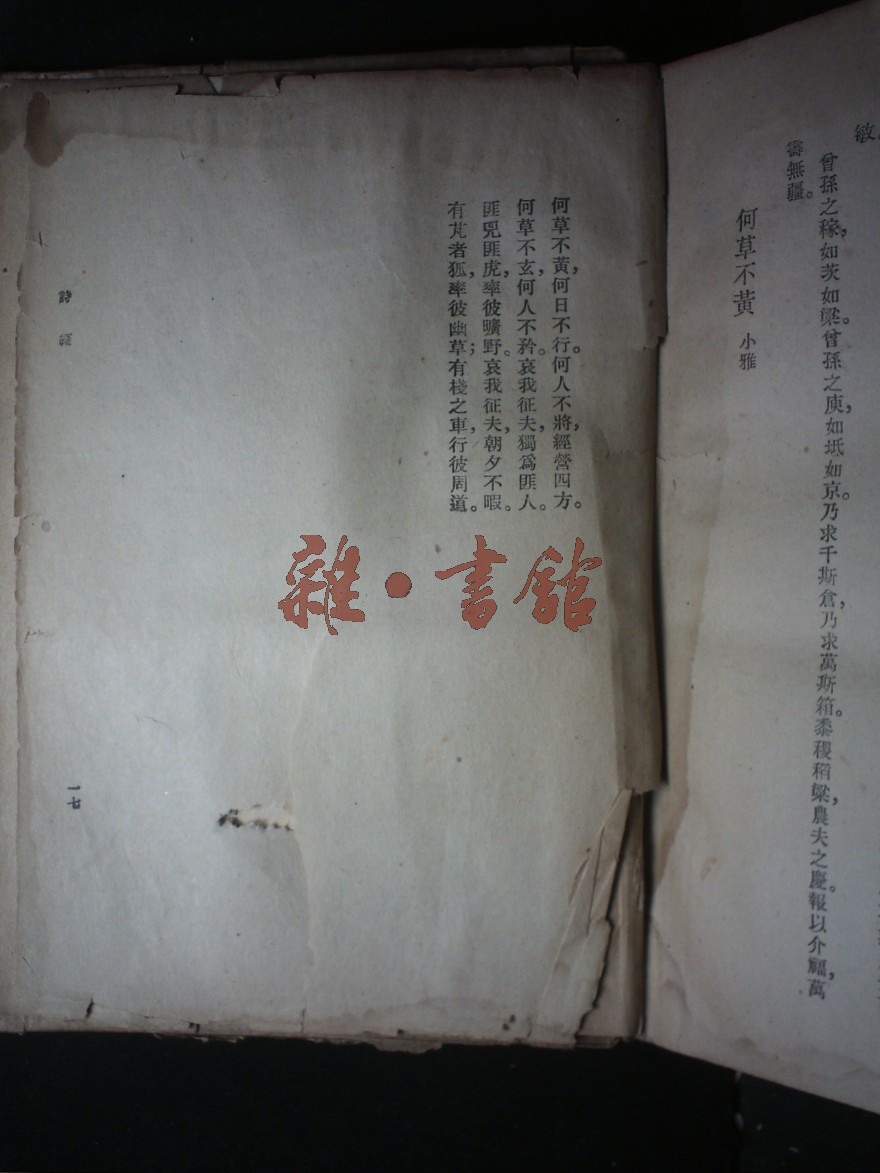 敏。
曾孫之稼，如茨如梁。曾孫之庾，如坻如京。乃求千斯倉，乃求萬斯箱。黍稷稻粱，農夫之慶。報以介福，萬
壽無疆。
何草不黃 小雅
何草不黃，何日不行。何人不將，經營四方。
何草不玄，何人不矜。哀我征夫，獨爲匪人。
匪兕匪虎，率彼曠野。哀我征夫，朝夕不暇。
有芃者狐，率彼幽草；有棧之車，行彼周道。
詩經
一七
雜·書館